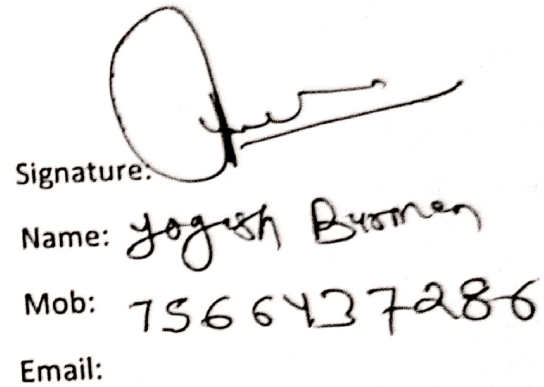 Signature:
Name: Yogesh Burman
Mob: 7566437286
Email: